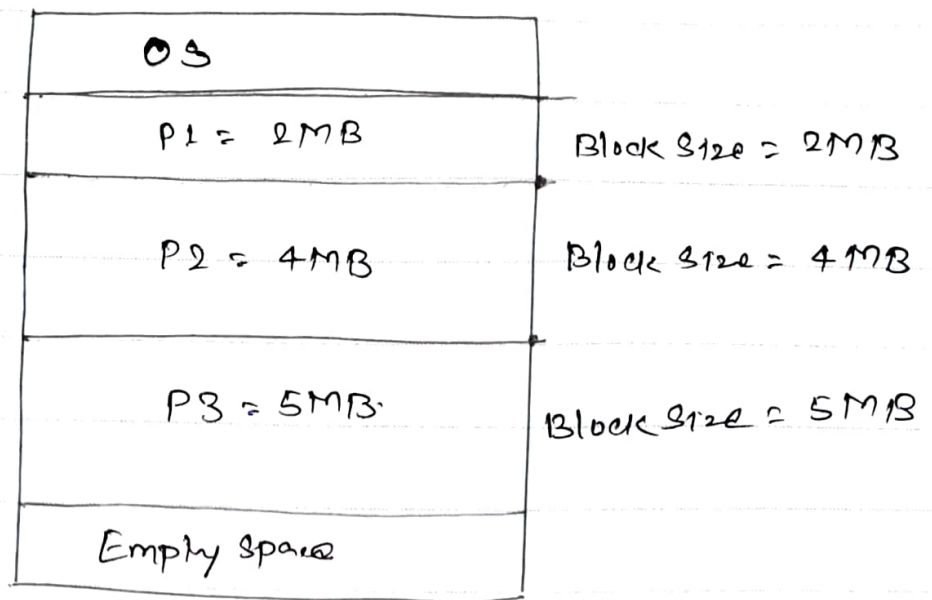 OS
P1 = 2MB
Block Size = 2MB
P2 = 4MB
Block Size = 4MB
P3 = 5MB.
Block Size = 5MB
Empty Space